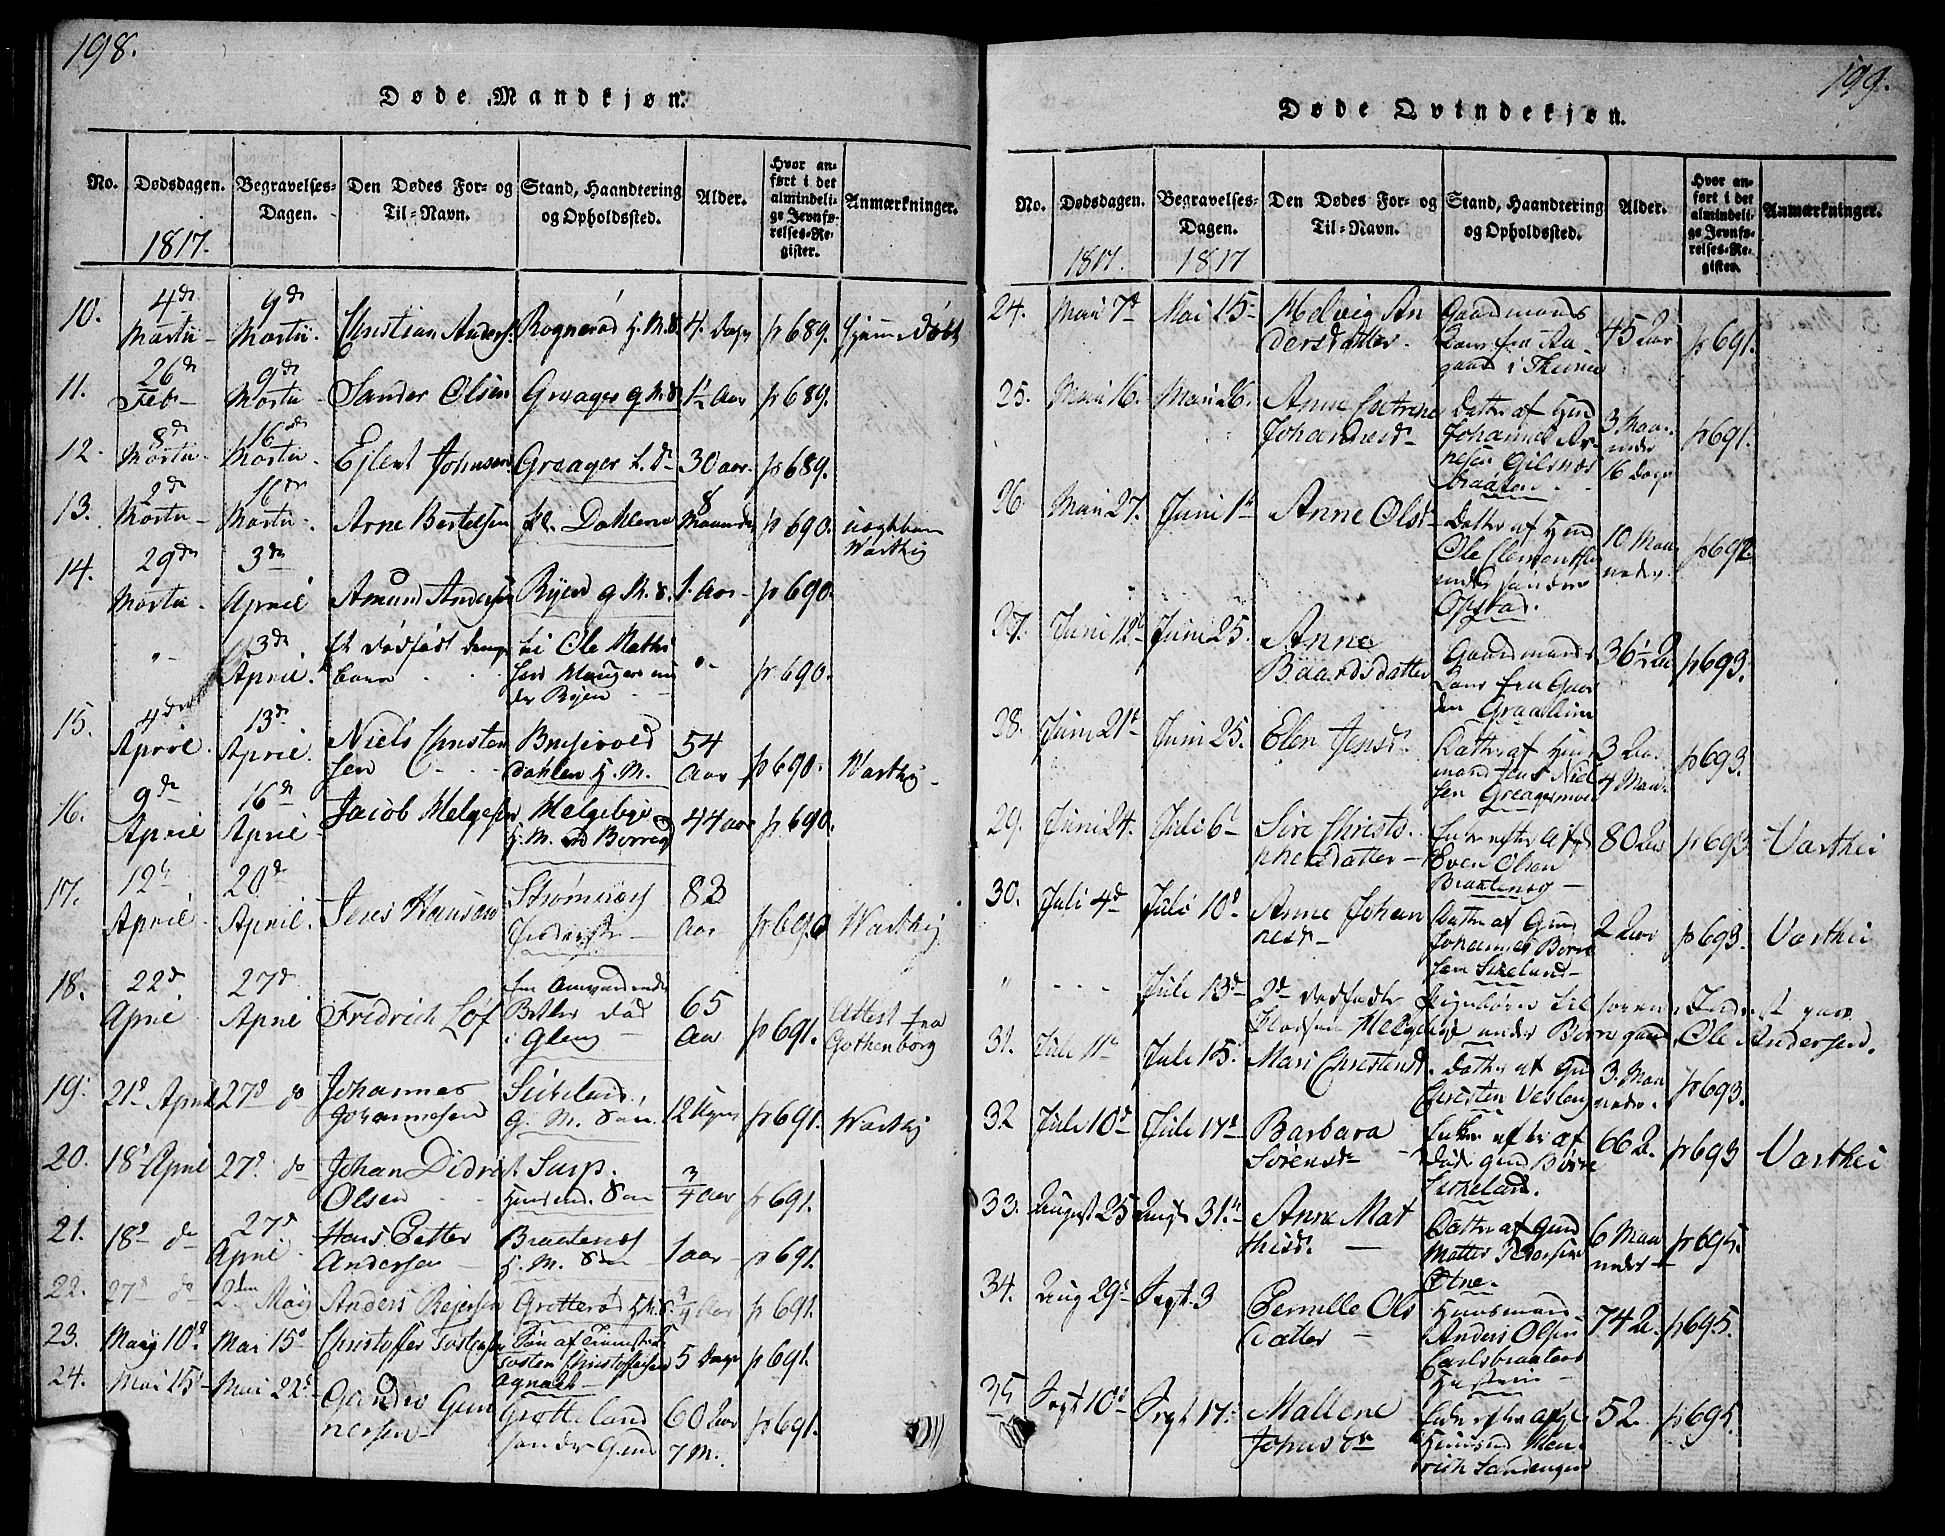 198.
Døde Mandkjøn.
No. Dødsdagen. Begravelses-Dagen. Den Dødes For- og Til-Navn. Stand, Haandtering og Opholdssted. Alder. Hvor anført i det almindelige Jevnførelses-Register. Anmærkninger.
1817.
10. 4de Martii 9de Martii Christian Anders. Rognerød 4. Dage p 689. Hjemme Døbt
11. 26de Feb 9de Martii Sander Olsen Greager 1½ Aar p 689.
12. 8de Martii 16de Martii Ejlert Johnsen Greager 30 aar p 689.
13. 2de Martii 16de Martii Arne Bertelsen Dahlene 8 Maaneder p 690.
14. 29de Martii 3de April Amund Andersen Ryen 1. Aar p 690.
" 3de April Et dødfødt Drenge
barn til Ole Mathi
sen Mangeren un
der Ryen " p 690.
15. 4de April 13de April Niels Christen
sen
dahlen H. M. 54 Aar p 690. Warthej
16. 9de April 16de April Jacob Helgesen Helgebye
H. M. Borreg 44 aar p 690.
17. 12te April 20de April Jens Hansen Strømnæs 83 Aar p 690 Warthej
18. 22de April 27de April Fredrich Løf en omvandrende
Betler død
i Gleng 65 Aar p 691. Attest fra
Gothenborg
19. 21de April 27de do Johannes
Johannesen Sikeland,
G. M. Søn. 12 Uger p 691. Warthej
20. 18de April 27de do Johan Didrich
Olsen Sarp. Søn ¾ Aar p 691.
21. 18de do 27de April Hans Petter
Andersen Braatenes
H. M. Søn 1 aar p 691.
22. 27de do 2den Maij Anders Reiersen Grotterød Aar p 691.
23. Maij 10de Mai 15de Christoffer Tostensen Søn af
Tosten Christoffersen
Agnalt 5 Dage p 691.
24. Mai 15de Mai 22de Gunder Gun
nersen Grotteland 60 Aar
7 M. p 691.
199.
Døde Qvindekjøn.
No. Dødsdagen. Begravelses-Dagen. Den Dødes For- og Til-Navn. Stand, Haandtering og Opholdssted. Alder. Hvor anført i det almindelige Jevnførelses-Register. Anmærkninger.
1817. 1817
24. Maii 7de Mai 15 Helvig An
dersdatter. Gaardmands
Kone fra Aa
gaard i Thune 45 Aar p 691.
25. Maii 16. Maii 26. Anne Catrine
Johannesd Datter af
Johannes Ar
nesen Gilsnæs
braaten 3 Maan
eder
16 Dage p 691.
26. Maii 27. Juni 1te Anne Olsd Datter af
Ole Clementsen
under søndre
Opstad. 10 Maa
neder p 692
27. Juni 12te Juni 25. Anne
Baardsdatter Gaardmands
Kone fra Gaar
den Graallum 36½ Aar p 693.
28. Juni 21de Juni 25. Elen Jensd. Datter af Huus
mand Jens Niel
sen Greagermoen 3 Aar
4 Maan. p 693.
29. Juni 24. Juli 6te Siri Christo
phersdatter Enke efter afgd
Sven Olsen
Braatenes 80 Aar p 693 Varthei
30. Juli 4de Juli 10de Anne Johan
nesd Datter af Gmd
Johannes Børre
sen Sikeland 2 Aar p 693. Varthei
" Juli 13de 2de dødfødte Pigebørn til
Helgebye under Borregaard, Ole Andersen.
31. Juli 11te Juli 15. Mari Christensd. Datter af Gmd
Christen Vesteng 3. Maa
neder. p 693.
32 Juli 10de Juli 17de Barbara
Sørensdr Enke efter af
døde Gmd Børre
Sikeland. 66 A. p 693 Varthei
33. August 25 Augst 31te Anne Mat
thisdr. Datter af Gmd
Mattis Pedersen
Otne. 6 Maa
neder p 695.
34. Aug 29de Sept 3 Pernille Ols
datter Huusmand
Anders Olsen
Carlsbraatens
Hustrue 74 A. p 695.
35 Sept 10de Sept 17. Mallene
Johnsdr Enke efter afg
Huusmd Hen
rich Sandengen 52. p 695.